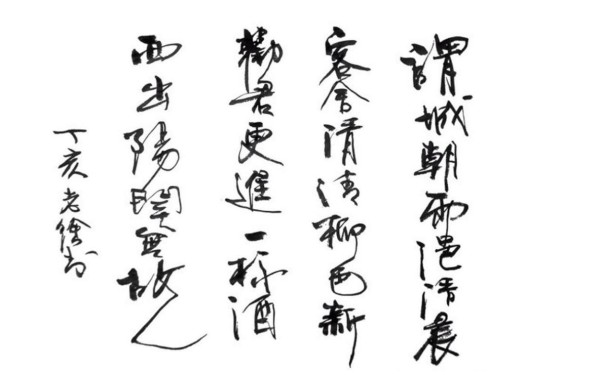 謂城朝雨浥清晨
客舍清清柳色新
勸君更進一杯酒
西出陽関無故人
丁亥老徐书